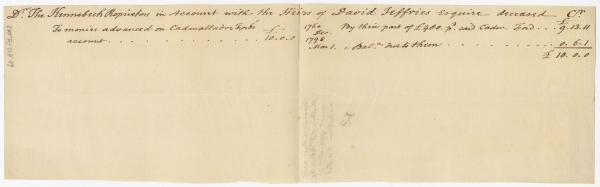 Dr. The Kennebeck Propietors in Account with the Heirs of David Jeffries Esquire deceased Cr.
To monies advanced on Cadwallador Fords £
account . . . . . . . . . . . . 10.0.0
1760 Dec. By their part of £400. pd. said Cadw. Ford . . . £ 9.13.11
1798
Mar 1. " Bal.ce due to them . . . . . . . 0.6.1
£ 10.0.0